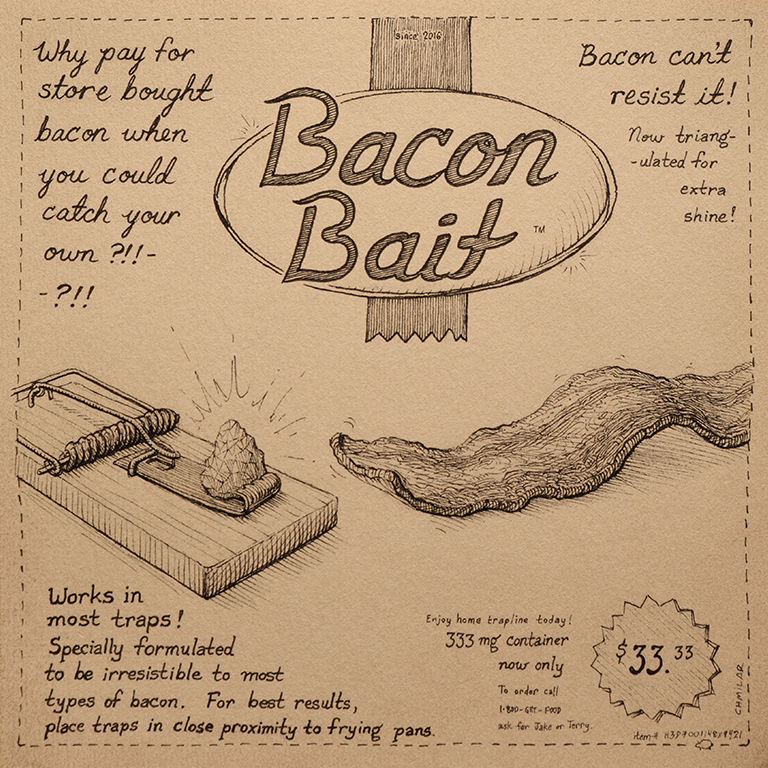 since 2016
Bacon
Bait ™
Why pay for
store bought
bacon when
you could
catch your
own ?!!-
-?!!
Bacon can't
resist it!
Now triang-
-ulated for
extra
shine!
Works in
most traps!
Specially formulated
to be irresistible to most
types of bacon. For best results,
place traps in close proximity to frying pans.
Enjoy home trapline today!
333 mg container
now only
To order call
1-800-GET-FOOD
ask for Jake or Terry.
$33.33
CHMILAR
item#